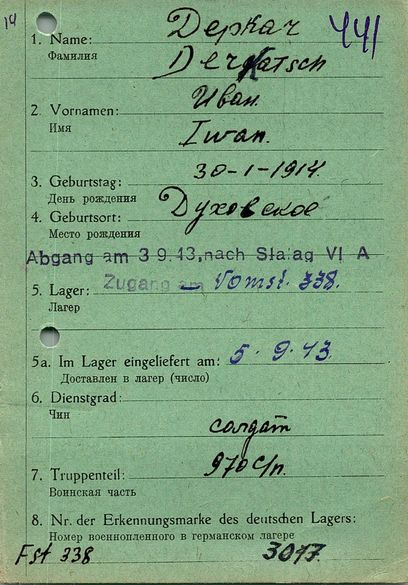 14
441
Деркач
1. Name:
Фамилия
Derkatsch
Иван.
2. Vornamen:
Имя
Iwan.
30-1-1914.
3. Geburtstag:
День рождения
Духовское
4. Geburtsort:
Место рождения
Abgang am 3 9.43, nach Stalag VI A
Zugang am
338.
5. Lager:
Лагер
5a. Im Lager eingeliefert am: 5.9.43.
Доставлен в лагер (число)
6. Dienstgrad:
Чин
солдат
970 с/п.
7. Truppenteil:
Воинская часть
8. Nr. der Erkennungsmarke des deutschen Lagers:
Номер военнопленного в германском лагере
Fst 338
3017.